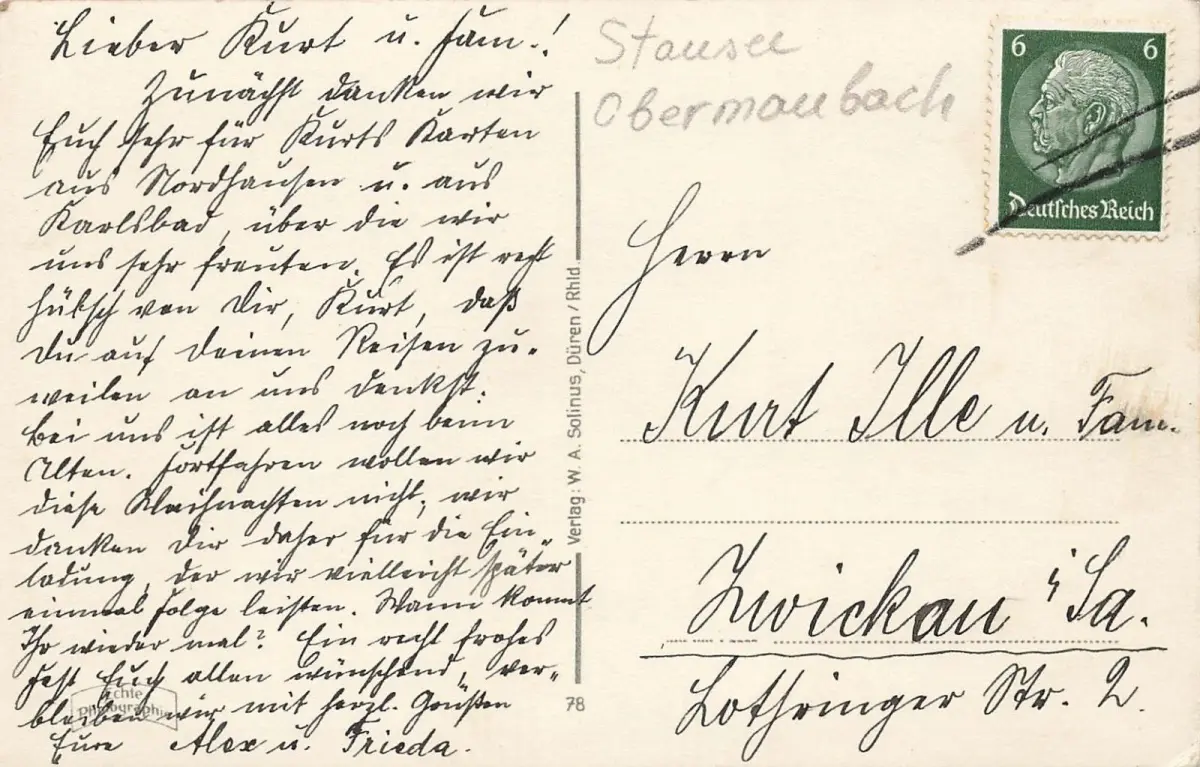 Lieber Kurt u. Fam.!
Zunächst danken wir
Euch sehr für Kurts Karten
aus Nordhausen u. aus
Karlsbad, über die wir
uns sehr freuten. Es ist recht
hübsch von Dir, Kurt, daß
Du auf Deinen Reisen zu-
weilen an uns denkst.
Bei uns ist alles noch beim
Alten. Fortfahren wollen wir
diese Weihnachten nicht, wir
danken Dir daher für die Ein-
ladung, der wir vielleicht später
einmal Folge leisten. Wann kommt
Ihr wieder mal? Ein recht frohes
Fest Euch allen wünschend, ver-
bleiben wir mit herzl. Grüßen
Eure Alex u. Frieda.
Echte
Photographie
Verlag: W. A. Solinus, Düren / Rhld.
78
Stausee
Obermaubach
6 6
Deutsches Reich
Herrn
Kurt Ille u. Fam.
Zwickau i/Sa.
Lothringer Str. 2.